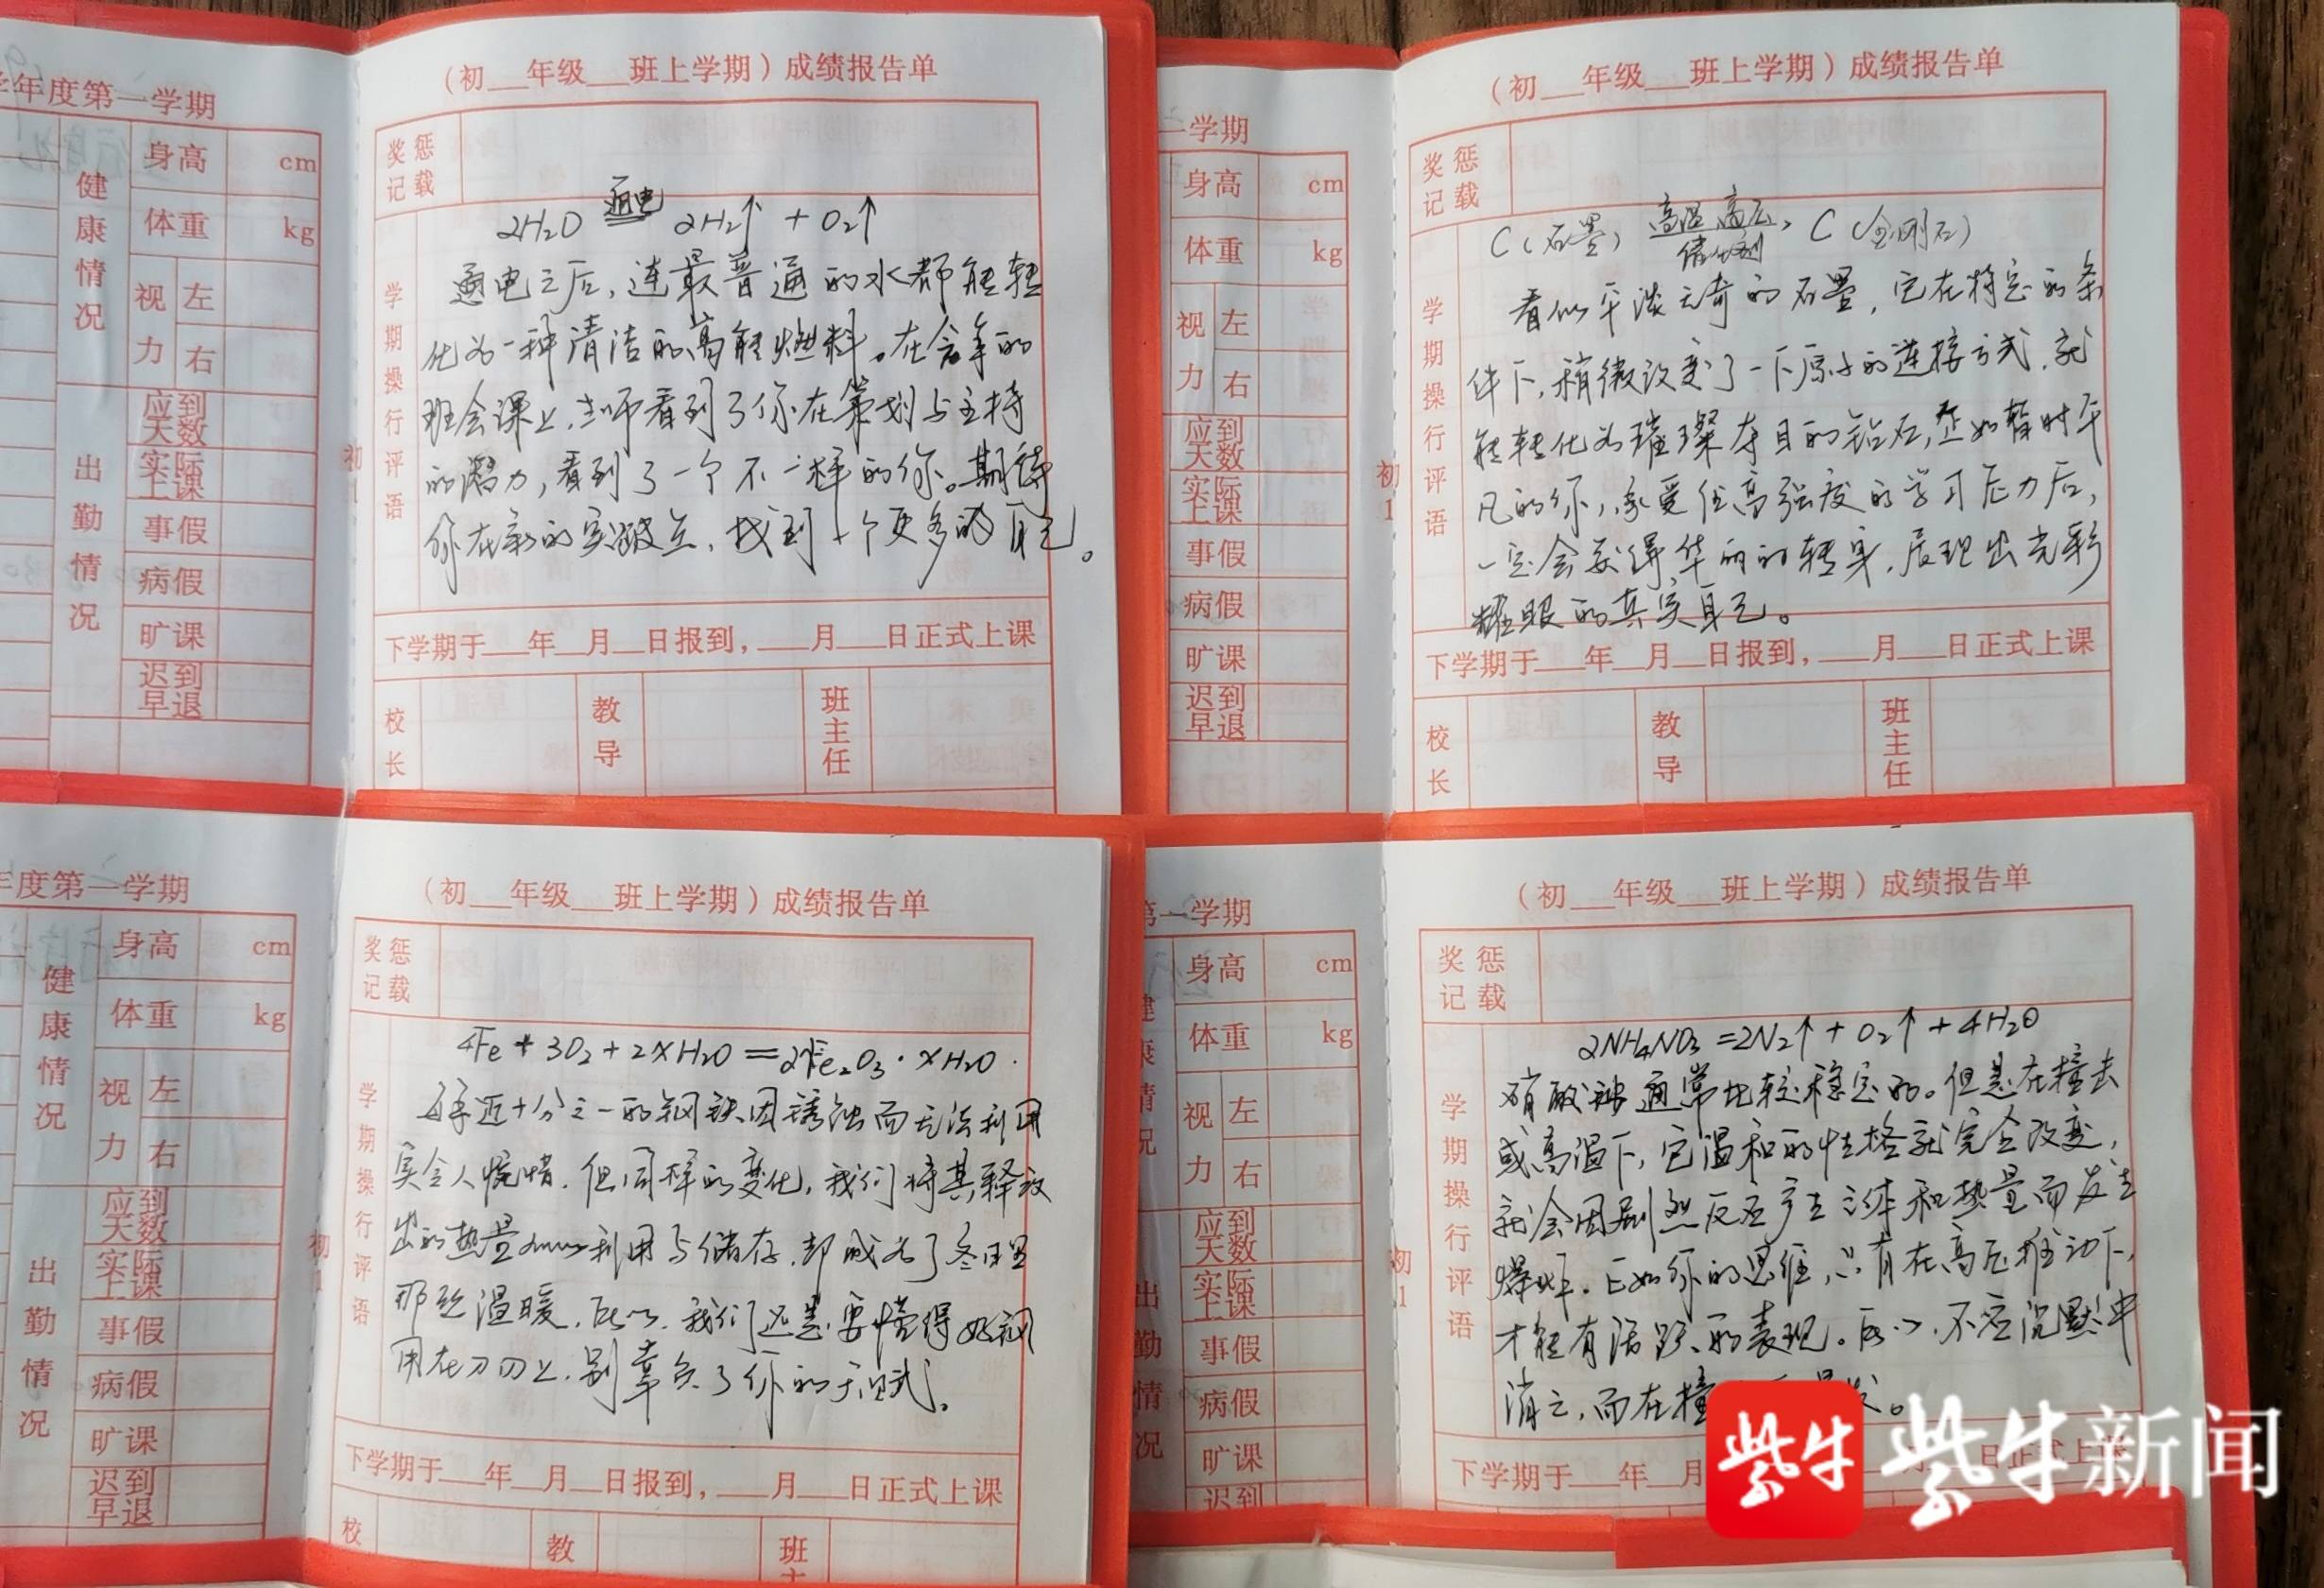 学年度第一学期
健康情况
身高 cm
体重 kg
视力 左
右
出勤情况
应到天数
实际上课
事假
病假
旷课
迟到早退
初1
(初___年级___班上学期)成绩报告单
奖惩记载
学期操行评语
2H₂O 通电 2H₂↑ + O₂↑
通电之后,连最普通的水都能转
化为一种清洁的高能燃料。在今年的
班会课上,老师看到了你在策划与主持
的潜力,看到了一个不一样的你。期待
你在新的突破点,找到一个更多的自己。
下学期于___年___月___日报到,___月___日正式上课
校长
教导
班主任
一学期
身高 cm
体重 kg
视力 左
右
应到天数
实际上课
事假
病假
旷课
迟到早退
初1
(初___年级___班上学期)成绩报告单
奖惩记载
学期操行评语
C(石墨) 高温高压 催化剂 C(金刚石)
看似平淡无奇的石墨,它在特定的条
件下,稍微改变了一下原子的连接方式,就
能转化为璀璨夺目的钻石,正如暂时平
凡的你,承受住高强度的学习压力后,
一定会获得华丽的转身,展现出光彩
耀眼的真实自己。
下学期于___年___月___日报到,___月___日正式上课
校长
教导
班主任
年度第一学期
健康情况
身高 cm
体重 kg
视力 左
右
出勤情况
应到天数
实际上课
事假
病假
旷课
迟到早退
初1
(初___年级___班上学期)成绩报告单
奖惩记载
学期操行评语
4Fe + 3O₂ + 2xH₂O = 2Fe₂O₃·xH₂O.
每年近十分之一的钢铁因锈蚀而无法利用
实令人惋惜.但同样的变化,我们将其释放
出的热量利用与储存,却成为了冬日里
那些温暖,所以,我们还是要懂得好钢
用在刀刃上,别辜负了你的天赋。
下学期于___年___月___日报到,___月___日正式上课
校
教
班主
第一学期
健康情况
身高 cm
体重 kg
视力 左
右
出勤情况
应到天数
实际上课
事假
病假
旷课
迟到
初1
(初___年级___班上学期)成绩报告单
奖惩记载
学期操行评语
2NH₄NO₃ = 2N₂↑ + O₂↑ + 4H₂O
硝酸铵通常比较稳定的。但是在撞击
或高温下,它温和的性格就完全改变,
就会因剧烈反应产生气体和热量而发生
爆炸.正如你的思维,只有在高压推动下,
才能有活跃的表现。所以,不应沉默中
消亡,而在撞
下学期于___年___月 日正式上课
紫牛 紫牛新闻